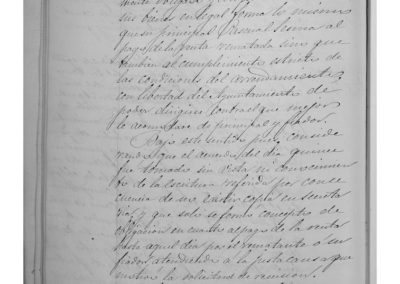 sus bienes en legal forma lo mismo
que su principal Manuel Serna al
pago de la renta rematada sino que
tambien al cumplimiento estricto de
las condiciones del arrendamiento,
con libertad del Ayuntamiento de
poder dirigirse contra el que mejor
le acomodare de principal y fiador.
Bajo este sentido pues, conside
rando que el acuerdo del dia quince
fue tomado sin vista ni conocimien
to de la escritura referida por conse
cuencia de no existir copia en secreta
ria, y que solo se formó concepto de
obligacion en cuanto al pago de la renta
hasta aquel dia por el rematante ó su
fiador, atendiendo á la justa causa que
motivó la solicitud de rescision.